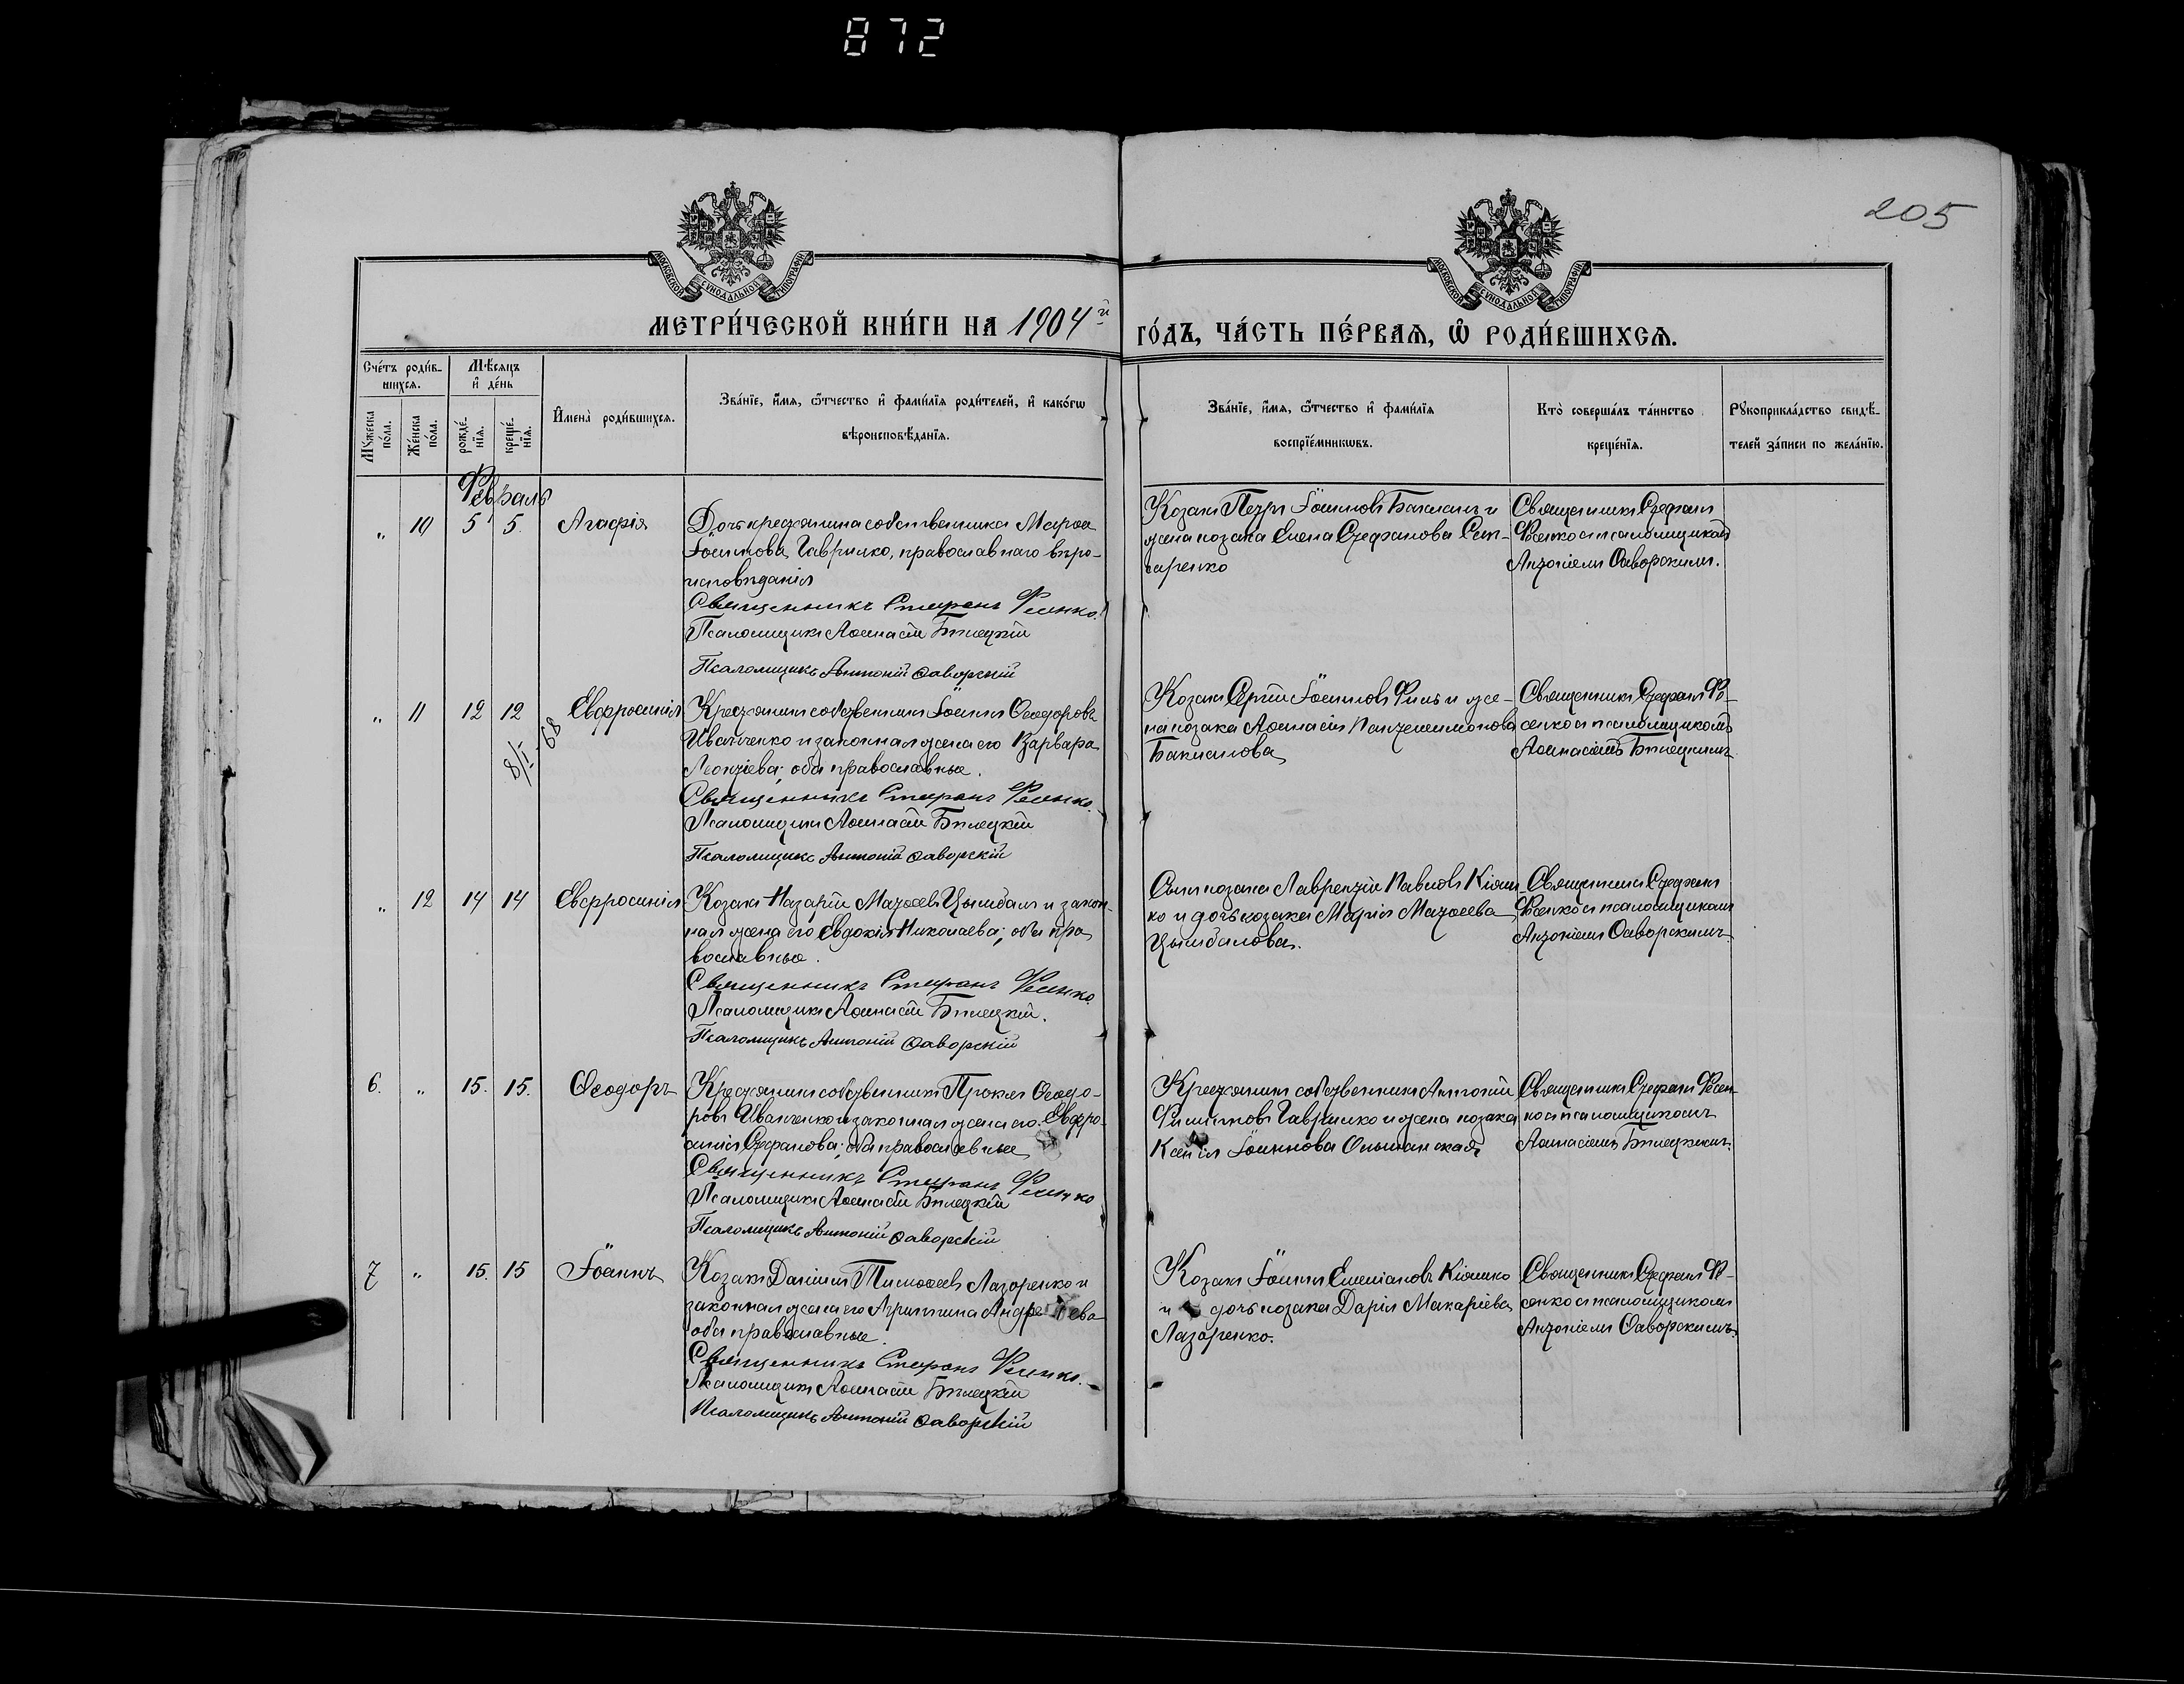 872
205
МОСКОВСКОЙ СѴНОДАЛЬНОЙ ТИПОГРАФІИ
МОСКОВСКОЙ СѴНОДАЛЬНОЙ ТИПОГРАФІИ
МЕТРИ́ЧЕСКОЙ КНИ́ГИ НА 1904й
ГО́ДЪ, ЧА́СТЬ ПЕ́РВАѦ, Ѡ҆ РОДИ́ВШИХСѦ.
Сче́тъ роди́в-
шихсѧ.
Мꙋ́жеска по́ла.
Же́нска по́ла.
Мѣ́сѧцъ
и҆ де́нь
рожде́-
нїѧ.
креще́-
нїѧ.
И҆мена̀ роди́вшихсѧ.
Зва́нїе, и҆́мѧ, ѻ҆́тчество и҆ фами́лїѧ роди́телей, и҆ како́гѡ
вѣроисповѣ́данїѧ.
Зва́нїе, и҆́мѧ, ѻ҆́тчество и҆ фами́лїѧ
воспрїе́мникѡвъ.
Кто̀ соверша́лъ та́инство
креще́нїѧ.
Рꙋкоприкла́дство свидѣ́-
телей за́писи по жела́нїю.
Февраль
„ 10 5 5. Агафія
Дочь крестьянина собственника Марѳа
Іоаннова Гаврилко, православнаго вѣро-
исповѣданія
Священникъ Стефанъ Фесенко.
Псаломщикъ Аѳанасій Бѣлецкій
Псаломщикъ Антоній Ѳаворскій
Козакъ Петръ Іоанновъ Бакланъ и
жена козака Елена Стефанова
Священникъ Стефанъ
Фесенко съ псаломщикомъ
Антоніемъ Ѳаворскимъ.
„ 11 12 12 Евфросинія
8/I 68
Крестьянинъ собственникъ Іоаннъ Ѳеодоровъ
Иванченко и законная жена его Варвара
Леонтіева; оба православные.
Священникъ Стефанъ Фесенко.
Псаломщикъ Аѳанасій Бѣлецкій
Псаломщикъ Антоній Ѳаворскій
Козакъ Сергій Іоанновъ Филь и же-
на козака Аѳанасія Пантелеимонова
Бакланова
Священникъ Стефанъ Фе-
сенко съ псаломщикомъ
Аѳанасіемъ Бѣлецкимъ.
„ 12 14 14 Евфросинія
Козакъ Назарій Матѳеевъ Цымбалъ и закон-
ная жена его Евдокія Николаева; оба пра-
вославные.
Священникъ Стефанъ Фесенко
Псаломщикъ Аѳанасій Бѣлецкій.
Псаломщикъ Антоній Ѳаворскій
Сынъ козака Лаврентій Павловъ Кіяш-
ко и дочь козака Марія Матѳеева
Цымбалова.
Священникъ Стефанъ
Фесенко съ псаломщикомъ
Антоніемъ Ѳаворскимъ.
6. „ 15. 15. Ѳеодоръ
Крестьянинъ собственникъ Проклъ Ѳеодо-
ровъ Иванченко и законная жена его Евфро-
синія Стефанова; оба православные
Священникъ Стефанъ Фесенко
Псаломщикъ Аѳанасій Бѣлецкій
Псаломщикъ Антоній Ѳаворскій
Крестьянинъ собственникъ Антоній
Филипповъ Гаврилко и жена козака
Ксенія Іоаннова Ольшанская
Священникъ Стефанъ Фесен-
ко съ псаломщикомъ
Аѳанасіемъ Бѣлецкимъ.
7 „ 15. 15 Іоаннъ
Козакъ Даніилъ Тимоѳеевъ Лазоренко и
законная жена его Агриппина Андреева
оба православные.
Священникъ Стефанъ Фесенко.
Псаломщикъ Аѳанасій Бѣлецкій
Псаломщикъ Антоній Ѳаворскій
Козакъ Іоаннъ Емеліановъ Кіяшко
и дочь козака Дарія Макаріева
Лазоренко.
Священникъ Стефанъ Фе-
сенко съ псаломщикомъ
Антоніемъ Ѳаворскимъ.